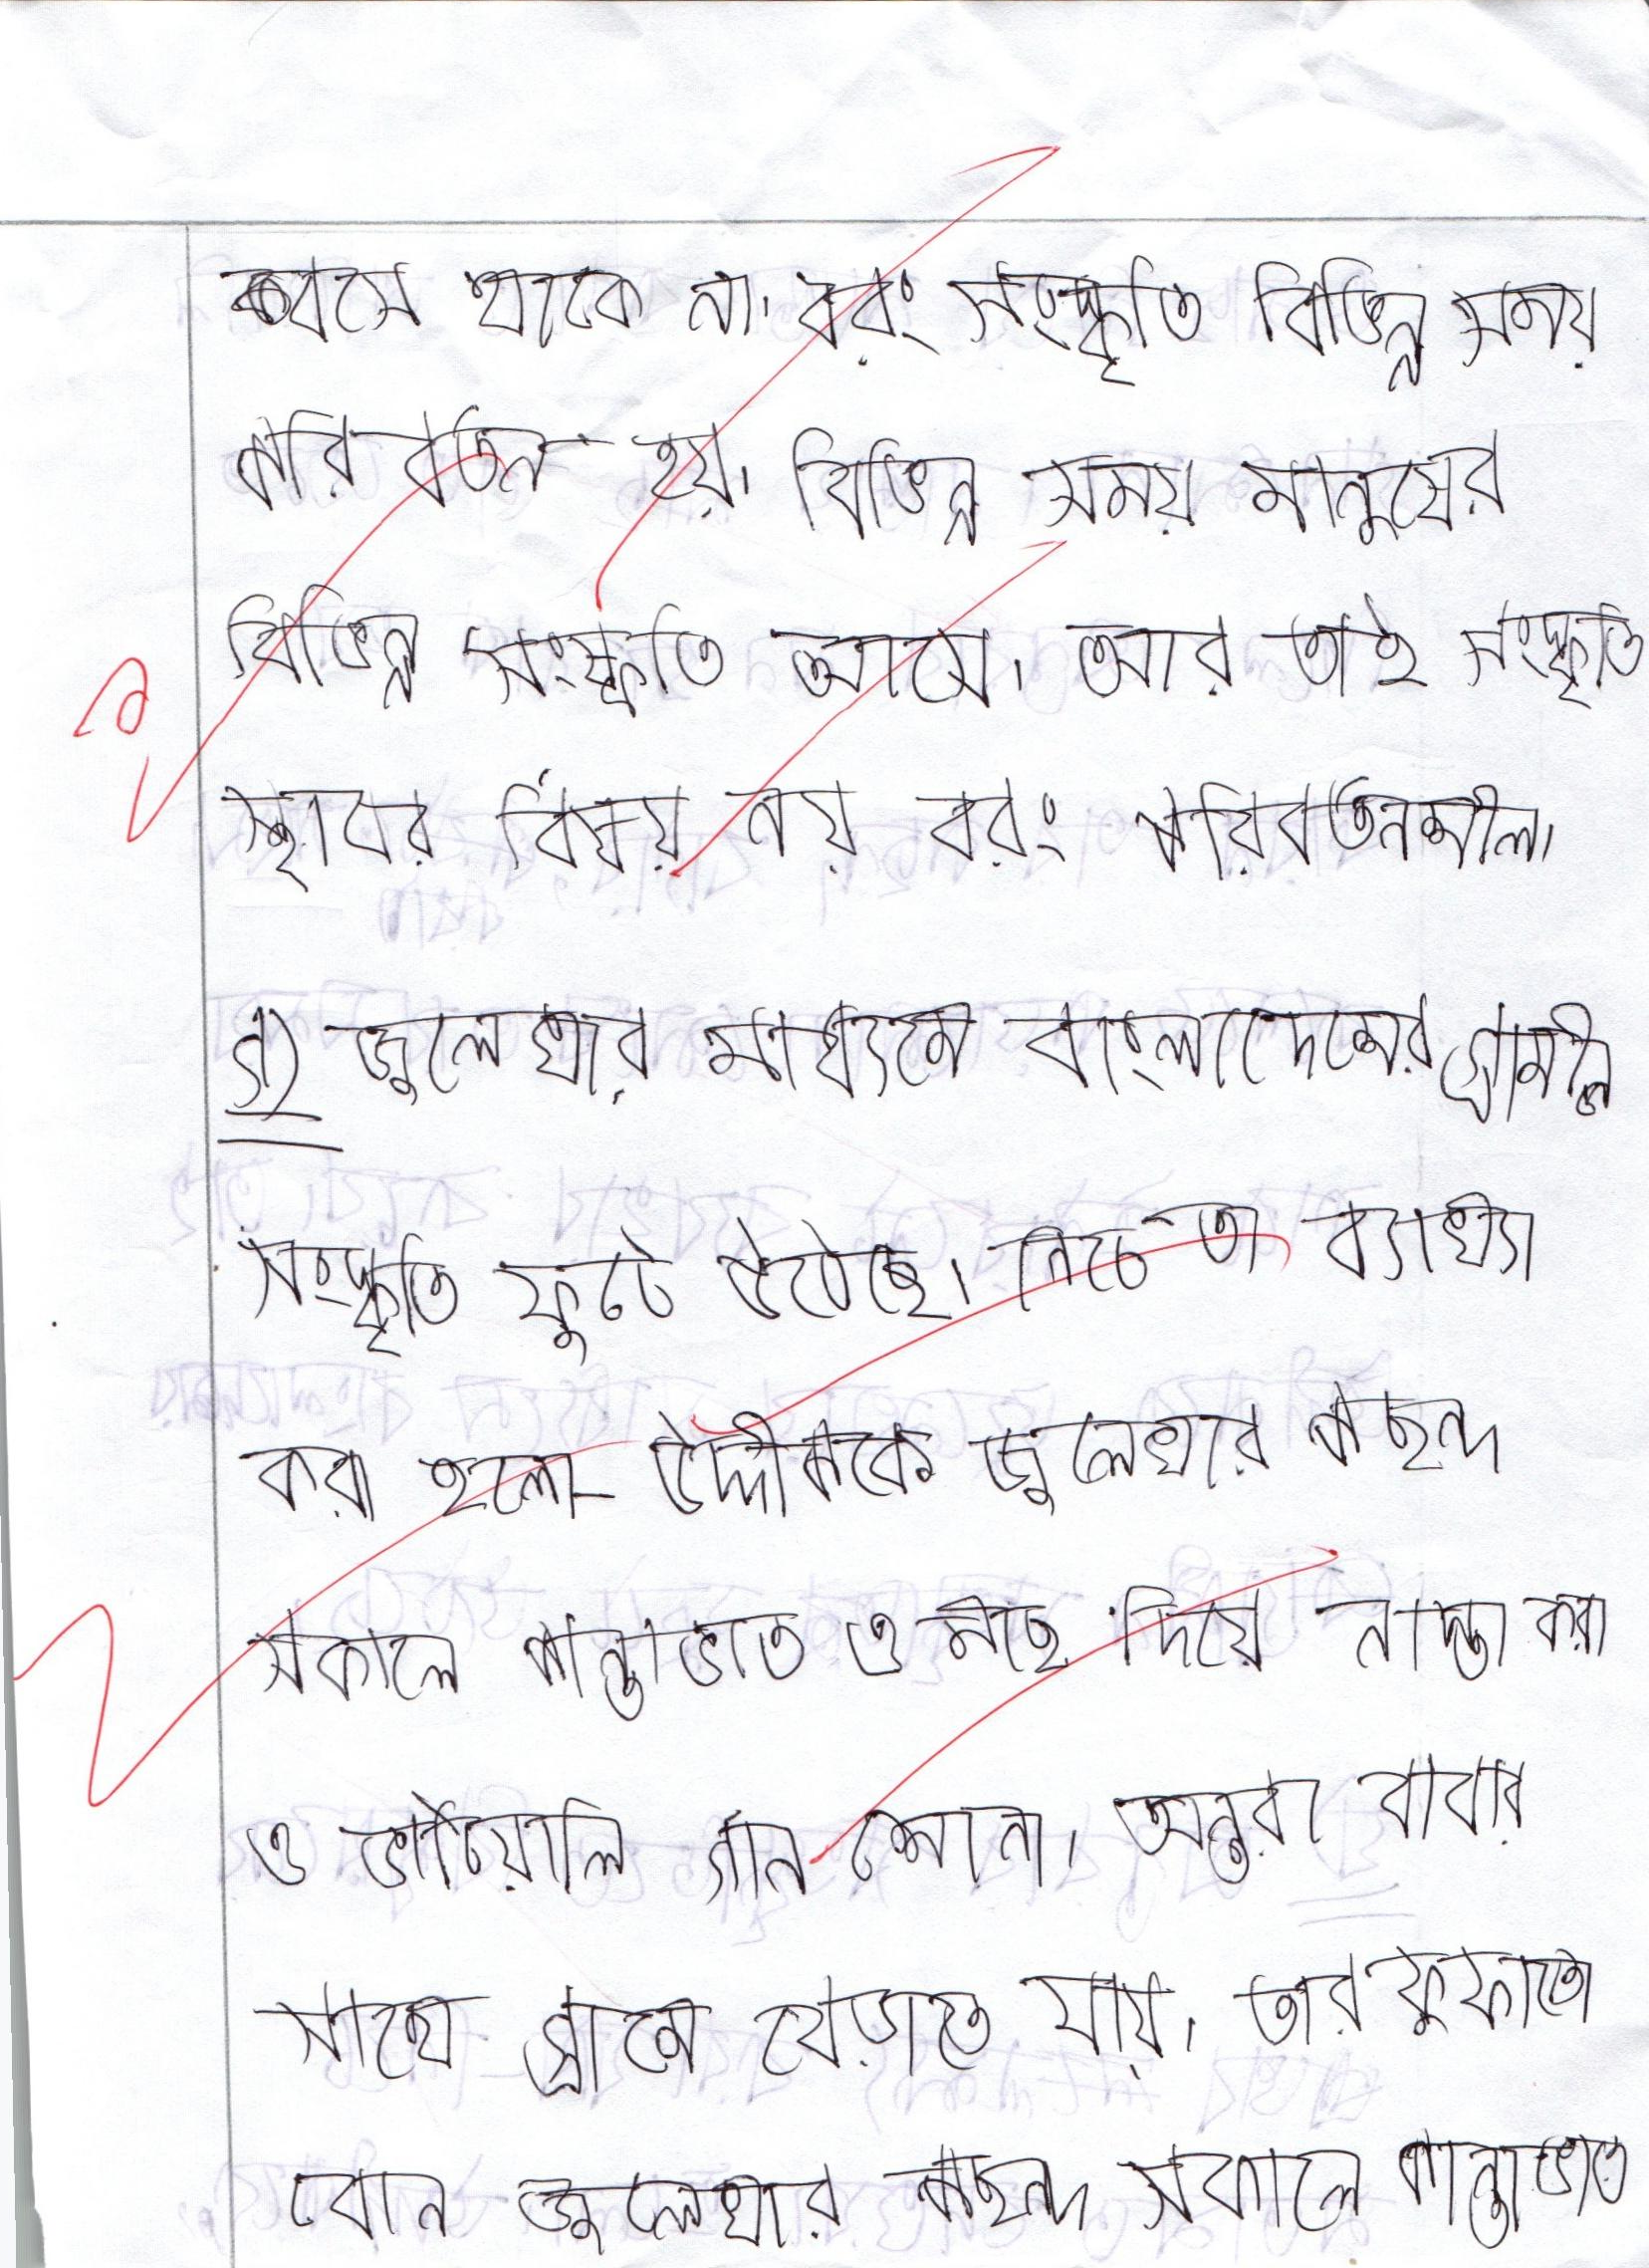 বসে থাকে না। বরং সংস্কৃতি বিভিন্ন সময়
পরিবর্তন হয়। বিভিন্ন সময় মানুষের
বিভিন্ন সংস্কৃতি আসে। আর তাই সংস্কৃতি
স্থাবর বিষয় নয় বরং পরিবর্তনশীল।
গ) জুলেখার মাধ্যমে বাংলাদেশের গ্রামীন
সংস্কৃতি ফুটে উঠেছে। নিচে তা ব্যাখ্যা
করা হলো- উদ্দীপকে জুলেখার পছন্দ
সকালে পান্তাভাত ও মাছ দিয়ে নাস্তা করা
ও ভাটিয়ালি গান শোনা। অন্তরা বাবার
সাথে গ্রামে বেড়াতে যায়। তার ফুফাতো
বোন জুলেখার পছন্দ সকালে পান্তাভাত